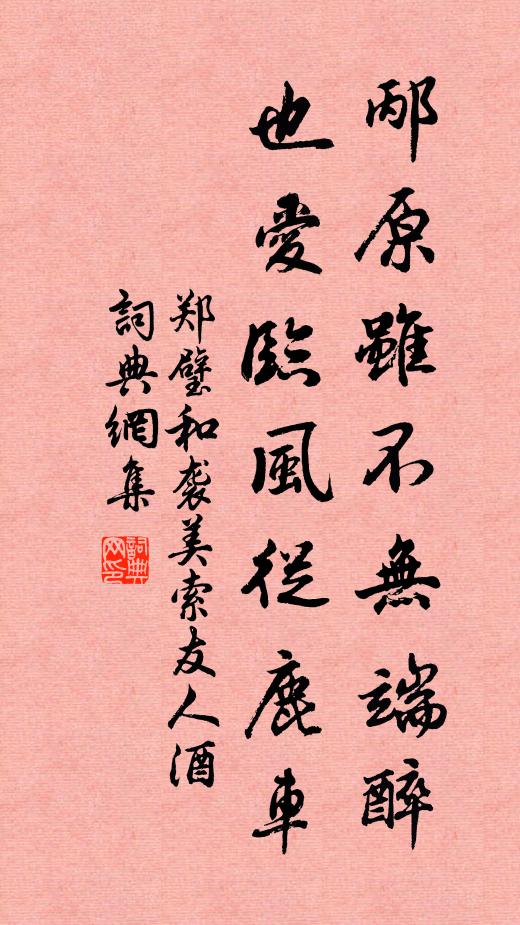 邴原雖不無端醉
也愛臨風從鹿車
郑璧和袭美索友人酒
詞典網集
詞典
网印